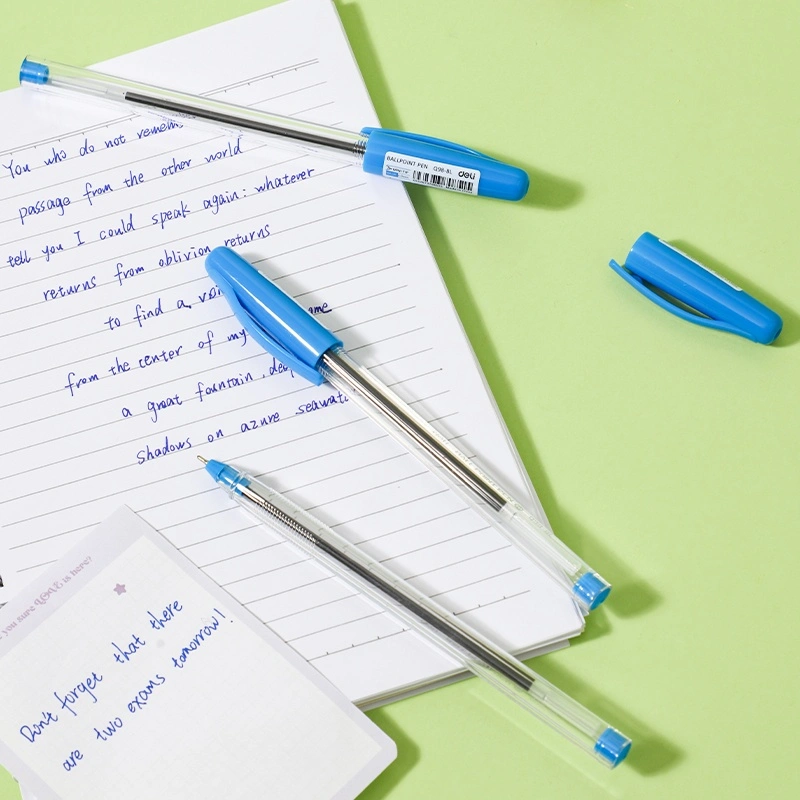 You who do not
passage from the other world
tell you I could speak again: whatever
returns from oblivion returns
to find a
from the center of my
a great fountain
shadows on azure
BALLPOINT PEN Q96-BL deli
Don't forget that there
are two exams tomorrow!